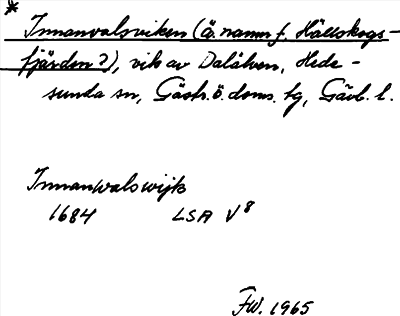 * Innanvalsviken (ä. namn f. Hällskogs-
fjärden?), vik av Dalälven, Hede-
sunda sn, Gästr. ö. doms. tg, Gävb. l.
Innanwalswijk
1684 LSA V8
FW. 1965